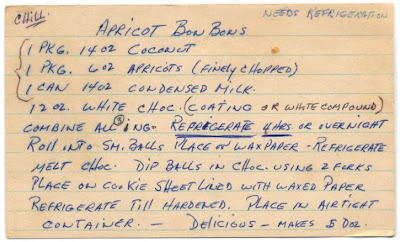 Chill NEEDS REFRIGERATION
APRICOT BON BONS
1 PKG. 14oz COCONUT
1 PKG. 6oz APRICOTS (FINELY CHOPPED)
1 CAN 14oz CONDENSED MILK.
12 oz. WHITE CHOC. (COATING OR WHITE COMPOUND)
COMBINE ALL 3 ING. REFRIGERATE 4 HRS OR OVERNIGHT
ROLL INTO SM. BALLS PLACE ON WAXPAPER - REFRIGERATE
MELT CHOC. DIP BALLS IN CHOC. USING 2 FORKS
PLACE ON COOKIE SHEET LINED WITH WAXED PAPER
REFRIGERATE TILL HARDENED. PLACE IN AIRTIGHT
CONTAINER. — DELICIOUS - MAKES 5 DOZ.